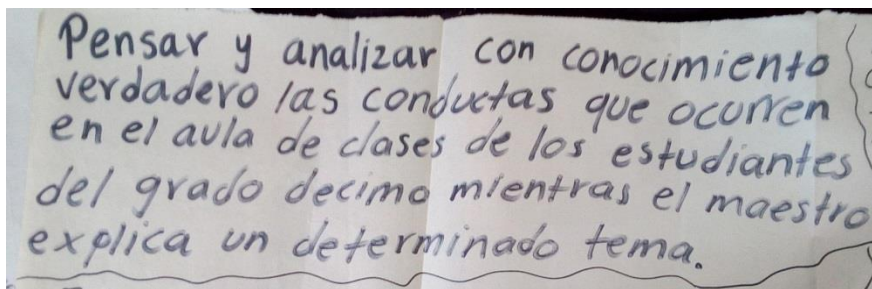 Pensar y analizar con conocimiento
verdadero las conductas que ocurren
en el aula de clases de los estudiantes
del grado decimo mientras el maestro
explica un determinado tema.